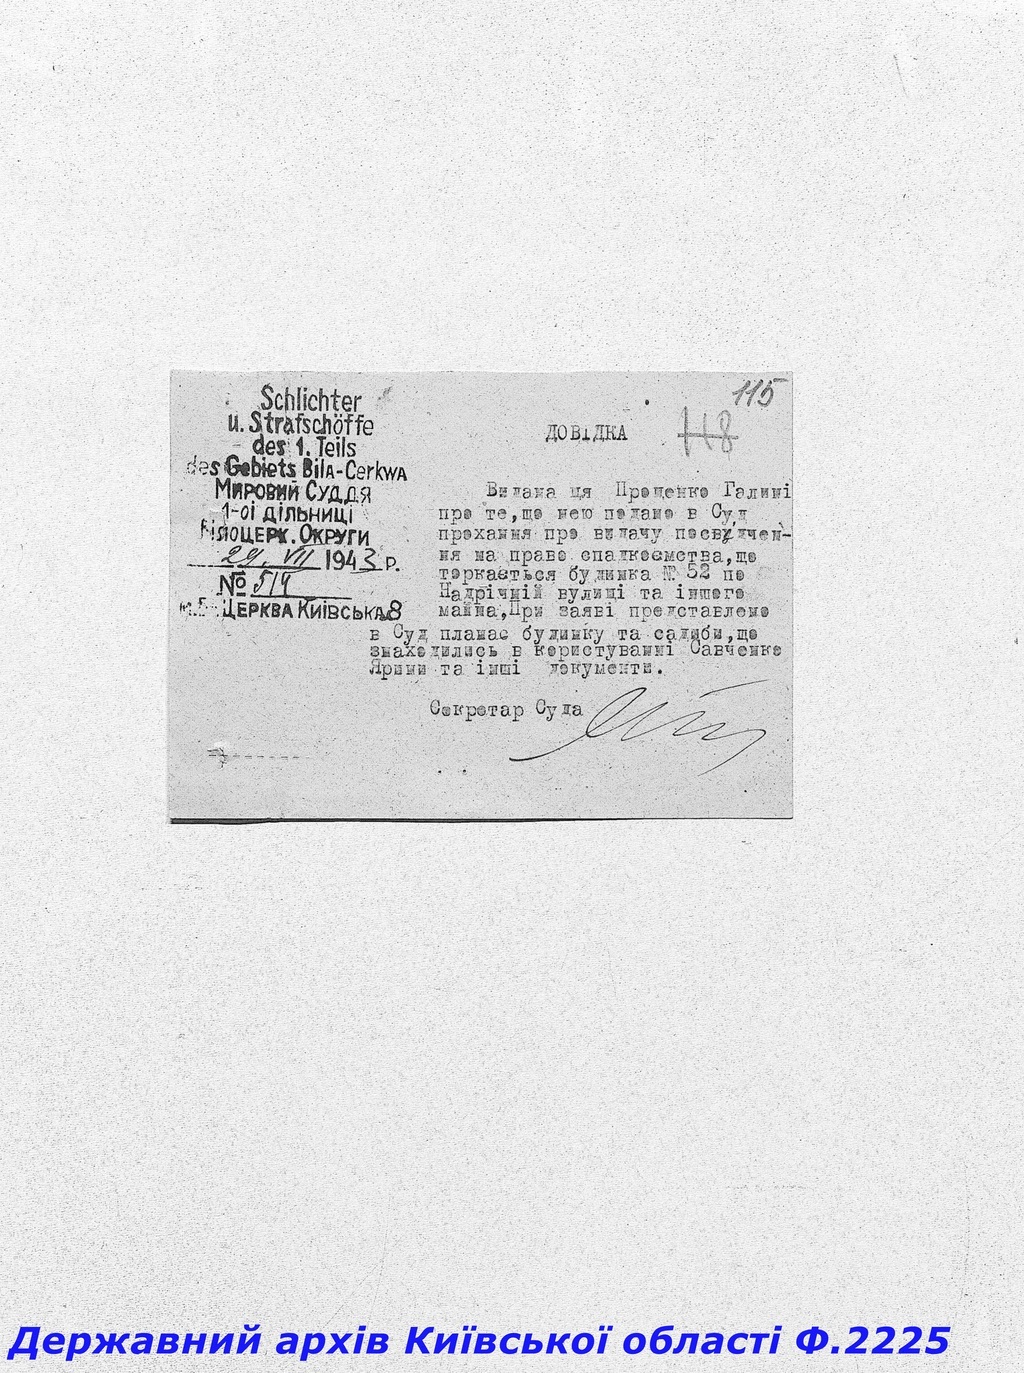 115
118
Schlichter
u. Strafschöffe
des 1. Teils
des Gebiets Bila-Cerkwa
Мировий Суддя
1-ої дільниці
Білоцерк. Округи
29. VII 1943 р.
№ 514
м. Б. Церква Київська 8
ДОВІДКА
Видана ця Проценко Галині
про те, що нею подано в Суд
прохання про видачу посвідчен-
ня на право спадкоємства, що
торкається будинка № 52 по
Надрічній вулиці та іншого
майна, При заяві представлено
в Суд планас будинку та садиби, що
знаходились в користуванні Савченко
Ярини та інші документи.
Секретар Суда
Державний архів Київської області Ф.2225